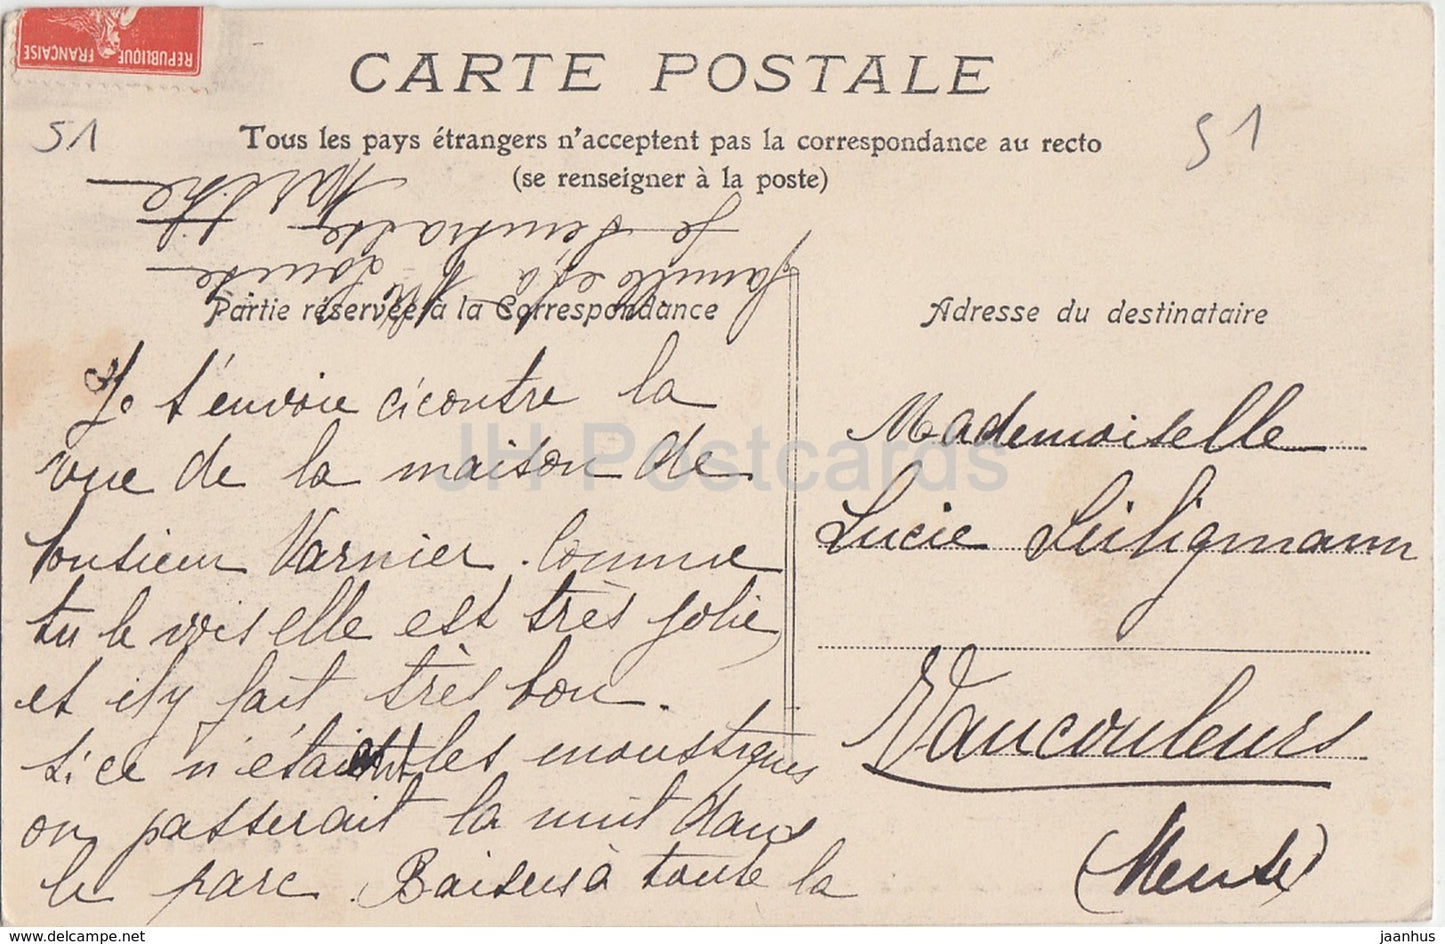 REPUBLIQUE FRANÇAISE
CARTE POSTALE
51
51
Tous les pays étrangers n'acceptent pas la correspondance au recto
(se renseigner à la poste)
Partie réservée à la Correspondance
Adresse du destinataire
Je t'envoie cicontre la
vue de la maison de
Monsieur Varnier. Comme
tu le vois elle est très jolie
et il y fait très bon.
si ce n'étaient les moustiques
on passerait la nuit dans
le parc. Baisers à toute la
famille et à Mlle Louise
Je t'embrasse
Marthe
Mademoiselle
Lucie
Vaucouleurs
(Meuse)
JH Postcards
www.jhpostcards.com
jaanhus